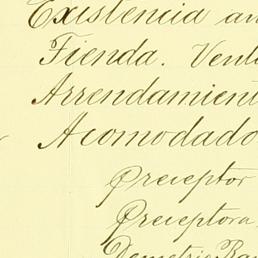 Existencia an
Tienda. Vent
Arrendamient
Acomodado
Preceptor
Preceptora,
Demetrio Ra